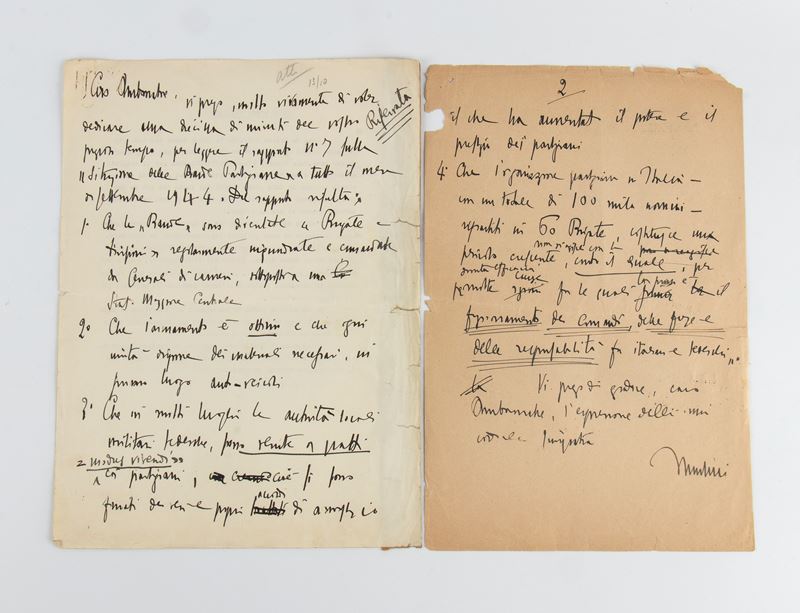 atti
13/10
Riservata
Caro Ambasciatore,
vi prego, molto vivamente di voler
dedicare una decina di minuti del vostro
prezioso tempo, per leggere il rapporto N° 7 sulla
"Situazione delle Bande Partigiane" a tutto il mese
di settembre 1944. Dal rapporto risulta:
1° Che le "Bande" sono diventate Brigate e
divisioni regolarmente inquadrate e comandate
da Generali di carriera, sottoposte a uno
Stato Maggiore Centrale
2° Che l'armamento è ottimo e che ogni
unità dispone dei materiali necessari, in
primo luogo auto-veicoli
3° Che in molti luoghi le autorità locali
militari tedesche, sono venute a patti
modus vivendi
coi partigiani, cioè si sono
accordi
firmati dei veri e propri di armistizio
2
Il che ha aumentato il potere e il
prestigio dei partigiani
4° Che l'organizzazione partigiana in Italia
con un totale di 100 mila uomini
ripartiti in 60 Brigate, costituisce un
pericolo crescente, per
molte fra le quali il
frazionamento dei Comandi, delle forze e
della responsabilità fra italiani e tedeschi".
Vi prego di gradire, caro
Ambasciatore, l'espressione della mia
cordiale simpatia
Mussolini